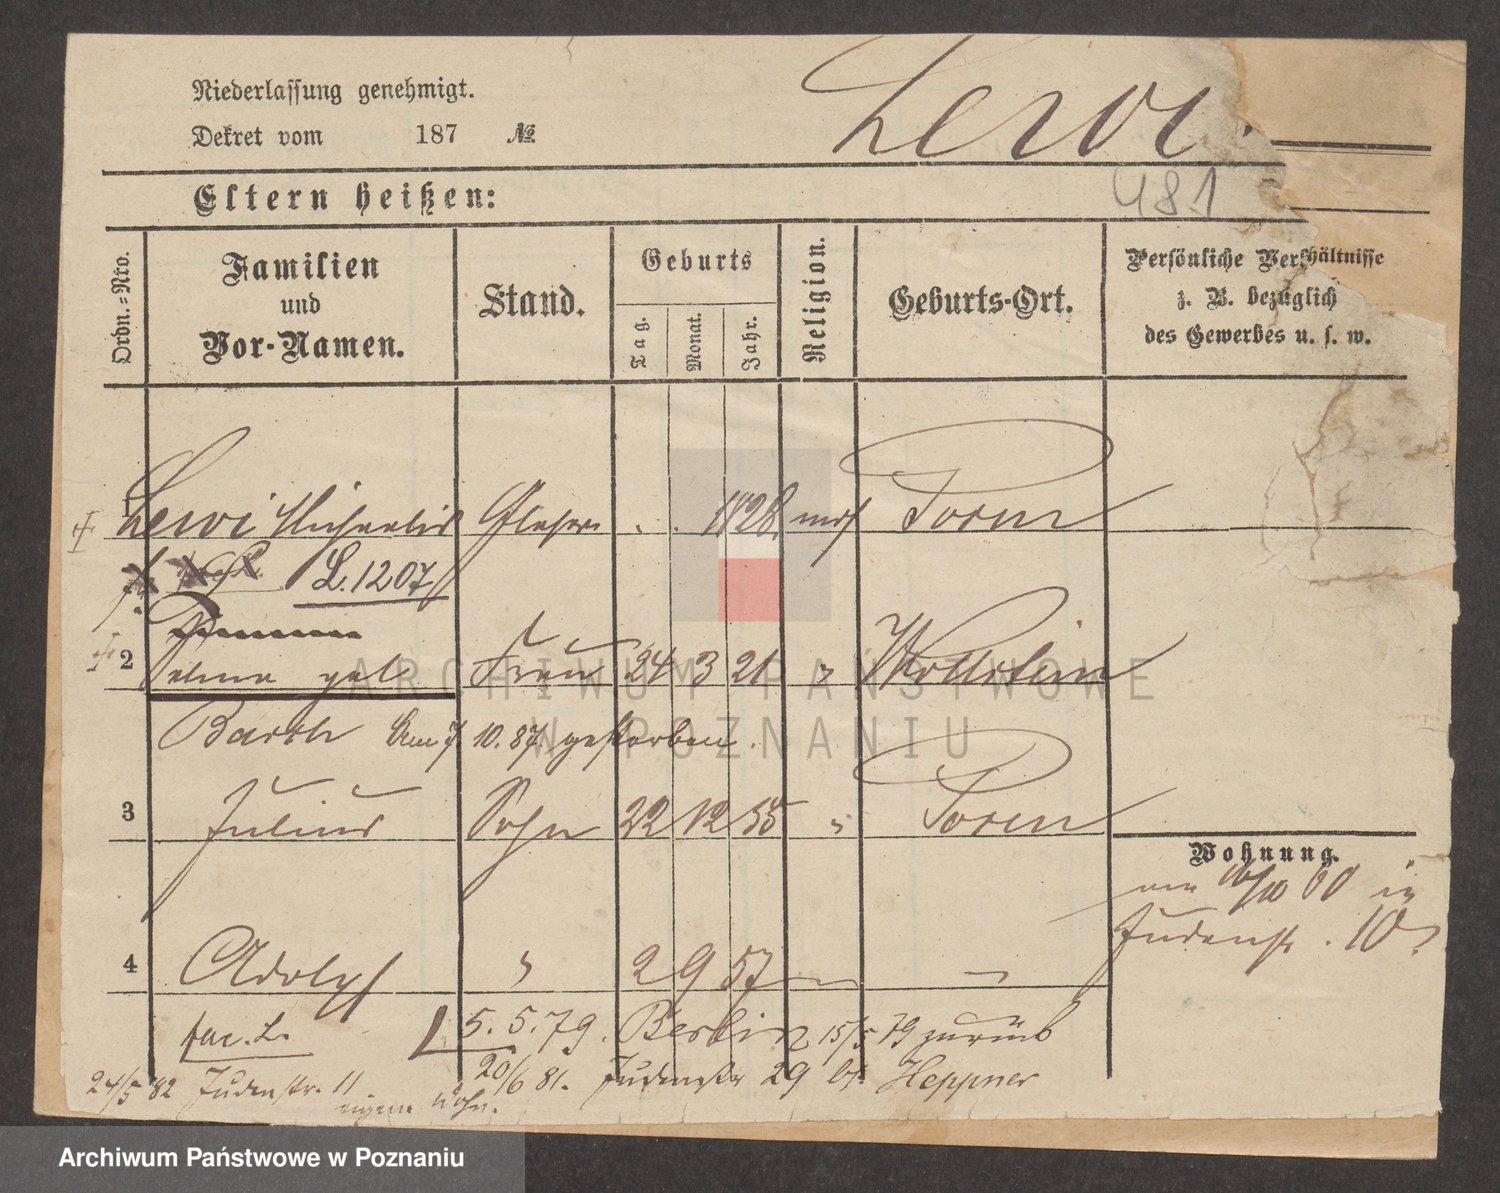 Niederlassung genehmigt.
Dekret vom 187 №
Lewi.
481
Eltern heißen:
Ordn.=Nro.
Familien
und
Vor-Namen.
Stand.
Geburts
Tag.
Monat.
Jahr.
Religion.
Geburts-Ort.
Persönliche Verhältnisse
z. B. bezüglich
des Gewerbes u. s. w.
1 Lewi Michaelis Glaser . . 1828. mos
L. 1207
2 Frau 24 3 21 " Wollstein
Barth Am 7 10. 87 gestorben.
3 Julius Sohn 22 12 55 "
Wohnung.
Judenstr. 10
4 Adolph " 2 9 57 — —
fac. L. 5. 5. 79. Berlin 15/5 79 zurück
20/6 81. Judenstr 29 b/ Heppner
24/5 82 Judenstr. 11
eigene Wohn.
ARCHIWUM PAŃSTWOWE
W POZNANIU
Archiwum Państwowe w Poznaniu